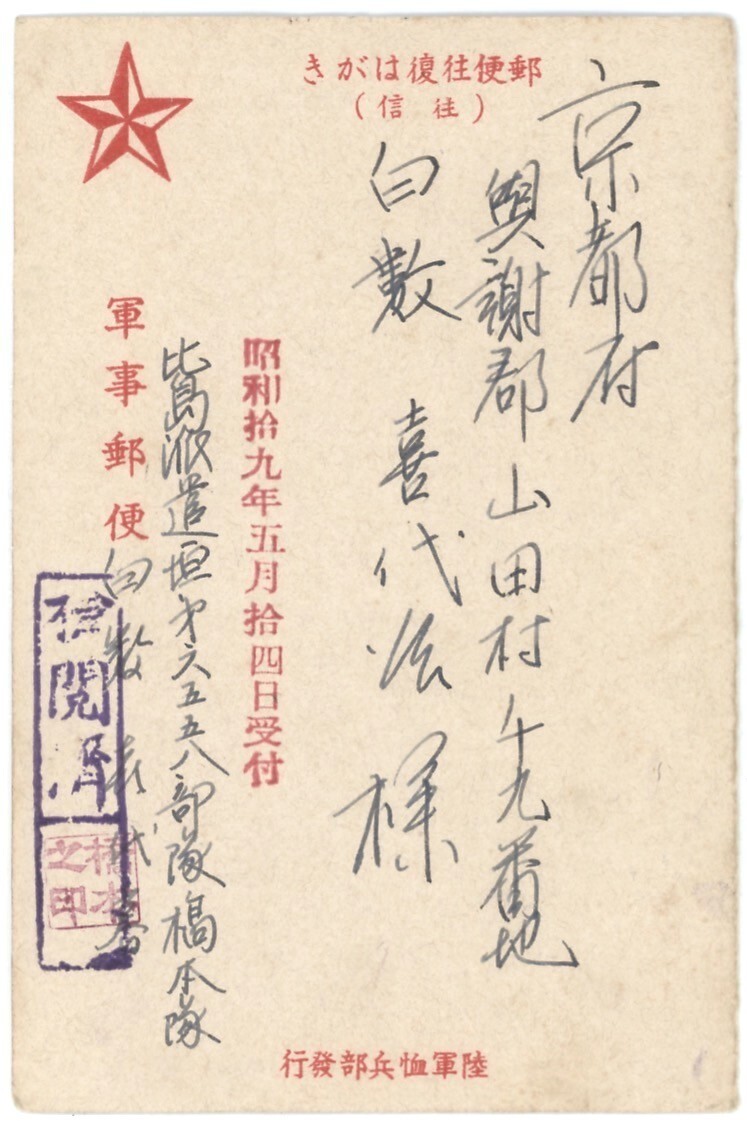 郵便往復はがき
(往信)
京都府
與謝郡山田村千九番地
白数 喜代治様
昭和拾九年五月拾四日受付
比島派遣垣才六五五八部隊橋本隊
軍事郵便
白数 喜代
検閲済
橋本之印
陸軍恤兵部發行